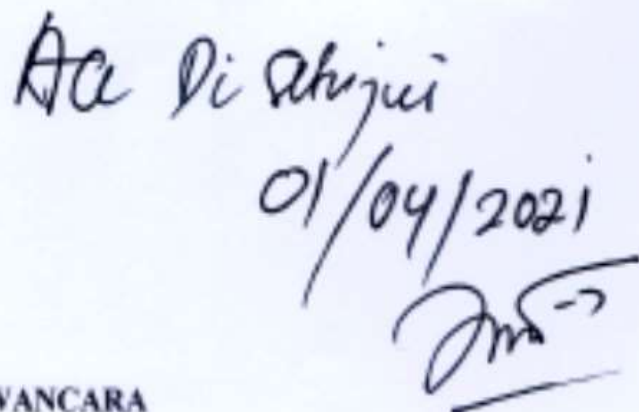 Acc Di Setujui
01/04/2021
WANCARA